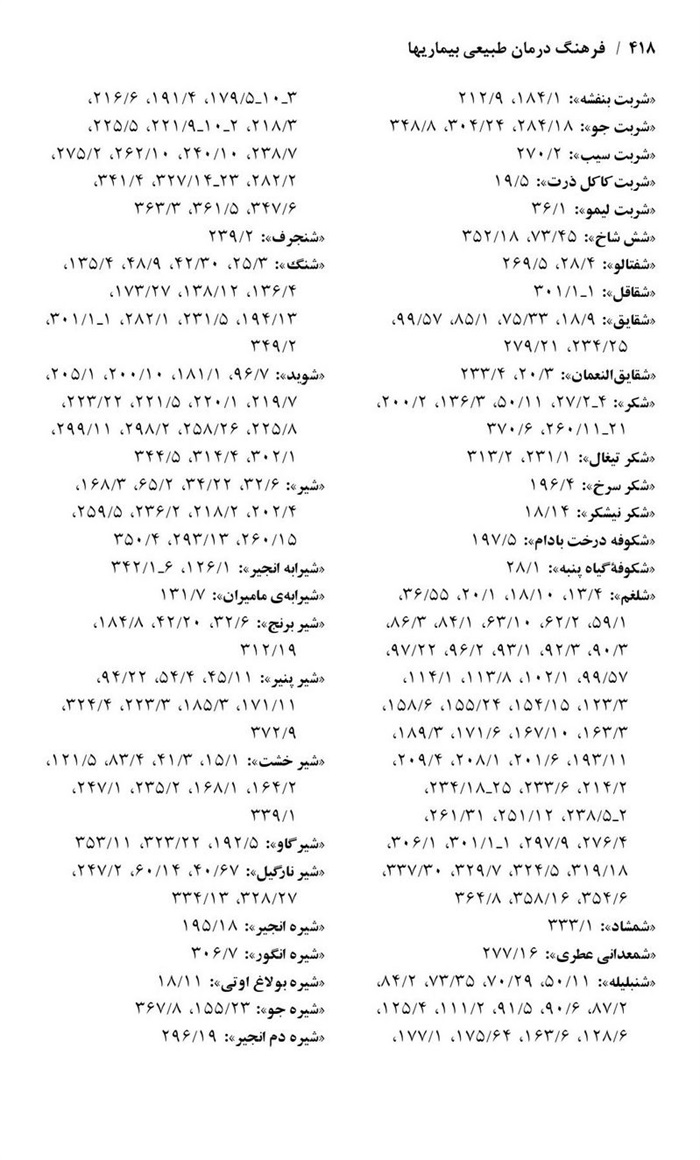 ۴۱۸ / فرهنگ درمان طبیعی بیماریها
«شربت بنفشه»: ۱۸۴/۱، ۲۱۲/۹
«شربت جو»: ۲۸۴/۱۸، ۳۰۴/۲۴، ۳۴۸/۸
«شربت سیب»: ۲۷۰/۲
«شربت کاکل ذرت»: ۱۹/۵
«شربت لیمو»: ۳۶/۱
«شش شاخ»: ۷۳/۴۵، ۳۵۲/۱۸
«شفتالو»: ۲۸/۴، ۲۶۹/۵
«شقاقل»: ۱_۳۰۱/۱
«شقایق»: ۱۸/۹، ۷۵/۳۳، ۸۵/۱، ۹۹/۵۷،
۲۳۴/۲۵، ۲۷۹/۲۱
«شقایق‌النعمان»: ۲۰/۳، ۲۳۳/۴
«شکر»: ۴_۲۷/۲، ۵۰/۱۱، ۱۳۶/۳، ۲۰۰/۲،
۲۱_۲۶۰/۱۱، ۳۷۰/۶
«شکر تیغال»: ۲۳۱/۱، ۳۱۳/۲
«شکر سرخ»: ۱۹۶/۴
«شکر نیشکر»: ۱۸/۱۴
«شکوفه درخت بادام»: ۱۹۷/۵
«شکوفهٔ گیاه پنبه»: ۲۸/۱
«شلغم»: ۱۳/۴، ۱۸/۱۰، ۲۰/۱، ۳۶/۵۵،
۵۹/۱، ۶۲/۲، ۶۳/۱۰، ۸۴/۱، ۸۶/۳،
۹۰/۳، ۹۲/۳، ۹۳/۱، ۹۶/۲، ۹۷/۲۲،
۹۹/۵۷، ۱۰۲/۱، ۱۱۳/۸، ۱۱۴/۱،
۱۲۳/۳، ۱۵۴/۱۵، ۱۵۵/۲۴، ۱۵۸/۶،
۱۶۳/۳، ۱۶۷/۱۰، ۱۷۱/۶، ۱۸۹/۳،
۱۹۳/۱۱، ۲۰۱/۶، ۲۰۸/۱، ۲۰۹/۴،
۲۱۴/۲، ۲۳۳/۶، ۲۵_۲۳۴/۱۸،
۲_۲۳۸/۵، ۲۵۱/۱۲، ۲۶۱/۳۱،
۲۷۶/۴، ۲۹۷/۹، ۱_۳۰۱/۱، ۳۰۶/۱،
۳۱۹/۱۸، ۳۲۴/۵، ۳۲۹/۷، ۳۳۷/۳۰،
۳۵۴/۶، ۳۵۸/۱۶، ۳۶۴/۸
«شمشاد»: ۳۳۳/۱
«شمعدانی عطری»: ۲۷۷/۱۶
«شنبلیله»: ۵۰/۱۱، ۷۰/۲۹، ۷۳/۳۵، ۸۴/۲،
۸۷/۲، ۹۰/۶، ۹۱/۵، ۱۱۱/۲، ۱۲۵/۴،
۱۲۸/۶، ۱۶۳/۶، ۱۷۵/۶۴، ۱۷۷/۱،
۳_۱۰_۱۷۹/۵، ۱۹۱/۴، ۲۱۶/۶،
۲۱۸/۳، ۲_۱۰_۲۲۱/۹، ۲۲۵/۵،
۲۳۸/۷، ۲۴۰/۱۰، ۲۶۲/۱۰، ۲۷۵/۲،
۲۸۲/۲، ۲۳_۳۲۷/۱۴، ۳۴۱/۴،
۳۴۷/۶، ۳۶۱/۵، ۳۶۳/۳
«شنجرف»: ۲۳۹/۲
«شنگ»: ۲۵/۳، ۴۲/۳۰، ۴۸/۹، ۱۳۵/۴،
۱۳۶/۴، ۱۳۸/۱۲، ۱۷۳/۲۷،
۱۹۴/۱۳، ۲۳۱/۵، ۲۸۲/۱، ۱_۳۰۱/۱،
۳۴۹/۲
«شوید»: ۹۶/۷، ۱۸۱/۱، ۲۰۰/۱۰، ۲۰۵/۱،
۲۱۹/۷، ۲۲۰/۱، ۲۲۱/۵، ۲۲۳/۲۲،
۲۲۵/۸، ۲۵۸/۲۶، ۲۹۸/۲، ۲۹۹/۱۱،
۳۰۲/۱، ۳۱۴/۴، ۳۴۴/۵
«شیر»: ۳۲/۶، ۳۴/۲۲، ۶۵/۲، ۱۶۸/۳،
۲۰۲/۴، ۲۱۸/۲، ۲۳۶/۲، ۲۵۹/۵،
۲۶۰/۱۵، ۲۹۳/۱۳، ۳۵۰/۴
«شیرابه انجیر»: ۱۲۶/۱، ۶_۳۴۲/۱
«شیرابه‌ی مامیران»: ۱۳۱/۷
«شیر برنج»: ۳۲/۶، ۴۲/۲۰، ۱۸۴/۸،
۳۱۲/۱۹
«شیر پنیر»: ۴۵/۱۱، ۵۴/۴، ۹۴/۲۲،
۱۷۱/۱۱، ۱۸۵/۳، ۲۲۳/۳، ۳۲۴/۴،
۳۷۲/۹
«شیر خشت»: ۱۵/۱، ۴۱/۳، ۸۳/۴، ۱۲۱/۵،
۱۶۴/۲، ۱۶۸/۱، ۲۳۵/۲، ۲۴۷/۱،
۳۳۹/۱
«شیرگاو»: ۱۹۲/۵، ۳۲۳/۲۲، ۳۵۳/۱۱
«شیر نارگیل»: ۴۰/۶۷، ۶۰/۱۴، ۲۴۷/۲،
۳۲۸/۲۷، ۳۳۴/۱۳
«شیره انجیر»: ۱۹۵/۱۸
«شیره انگور»: ۳۰۶/۷
«شیره بولاغ اوتی»: ۱۸/۱۱
«شیره جو»: ۱۵۵/۲۳، ۳۶۷/۸
«شیره دم انجیر»: ۲۹۶/۱۹